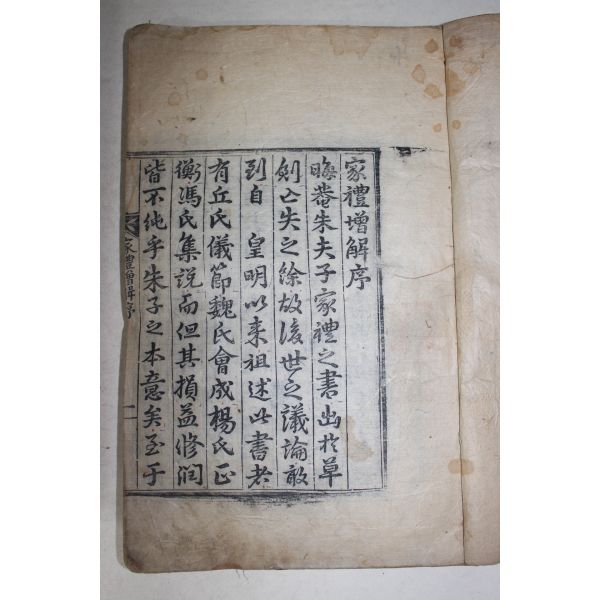 家禮增解序
晦菴朱夫子家禮之書出於草
刱亡失之餘故後世之議論敢
到自 皇明以來祖述此書者
有丘氏儀節魏氏會成楊氏正
衡馮氏集說而但其損益修潤
皆不純乎朱子之本意矣至于
家禮增解序
一